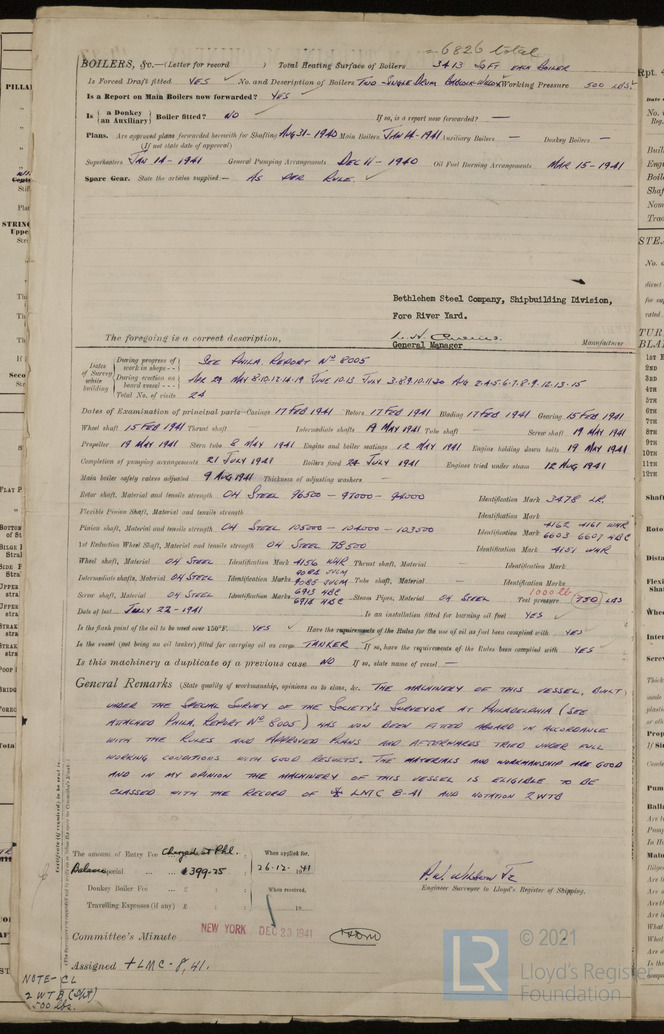 = 6826 total
BOILERS, &c.—(Letter for record ) Total Heating Surface of Boilers 3413 SQ FT EACH BOILER
Is Forced Draft fitted YES No. and Description of Boilers TWO SINGLE DRUM BABCOCK-WILCOX Working Pressure 500 LBS.
Is a Report on Main Boilers now forwarded? YES
Is {a Donkey / an Auxiliary} Boiler fitted? NO If so, is a report now forwarded? —
Plans. Are approved plans forwarded herewith for Shafting AUG 31-1940 Main Boilers JAN 14-1941 Auxiliary Boilers — Donkey Boilers —
(If not state date of approval)
Superheaters JAN 14-1941 General Pumping Arrangements DEC 11-1940 Oil Fuel Burning Arrangements MAR 15-1941
Spare Gear. State the articles supplied:— AS PER RULE.
Bethlehem Steel Company, Shipbuilding Division,
Fore River Yard.
The foregoing is a correct description,
General Manager Manufacturer
Dates of Survey while building
During progress of work in shops -- SEE PHILA. REPORT No 8005
During erection on board vessel --- APR 29 MAY 8.10.12.14.19 JUNE 10.13 JULY 3.8.9.10.11.20 AUG 2.4.5.6.7.8.9.12.13.15
Total No. of visits 24
Dates of Examination of principal parts—Casings 17 FEB 1941 Rotors 17 FEB 1941 Blading 17 FEB 1941 Gearing 15 FEB 1941
Wheel shaft 15 FEB 1941 Thrust shaft Intermediate shafts 19 MAY 1941 Tube shaft — Screw shaft 19 MAY 1941
Propeller 19 MAY 1941 Stern tube 8 MAY 1941 Engine and boiler seatings 12 MAY 1941 Engine holding down bolts 19 MAY 1941
Completion of pumping arrangements 21 JULY 1941 Boilers fixed 24 JULY 1941 Engines tried under steam 12 AUG 1941
Main boiler safety valves adjusted 9 AUG 1941 Thickness of adjusting washers —
Rotor shaft, Material and tensile strength OH STEEL 96500 - 97000 - 94000 Identification Mark 3478 LR.
Flexible Pinion Shaft, Material and tensile strength Identification Mark
Pinion shaft, Material and tensile strength OH STEEL 105000 - 104000 - 103500 Identification Mark 4162 4161 WHR 6603 6607 HBC
1st Reduction Wheel Shaft, Material and tensile strength OH STEEL 78500 Identification Mark 4151 WHR
Wheel shaft, Material OH STEEL Identification Mark 4156 WHR Thrust shaft, Material — Identification Mark —
Intermediate shafts, Material OH STEEL Identification Marks 9085 Tube shaft, Material — Identification Marks
Screw shaft, Material OH STEEL Identification Marks 6913 HBC 6918 HBC Steam Pipes, Material OH STEEL Test pressure 1000 lb (750) LBS
Date of test JULY 22-1941 Is an installation fitted for burning oil fuel YES
Is the flash point of the oil to be used over 150°F. YES Have the requirements of the Rules for the use of oil as fuel been complied with YES
Is the vessel (not being an oil tanker) fitted for carrying oil as cargo TANKER If so, have the requirements of the Rules been complied with YES
Is this machinery a duplicate of a previous case NO If so, state name of vessel —
General Remarks (State quality of workmanship, opinions as to class, &c. THE MACHINERY OF THIS VESSEL, BUILT
UNDER THE SPECIAL SURVEY OF THE SOCIETY'S SURVEYOR AT PHILADELPHIA (SEE
ATTACHED PHILA. REPORT No 8005) HAS NOW BEEN FITTED ABOARD IN ACCORDANCE
WITH THE RULES AND APPROVED PLANS AND AFTERWARDS TRIED UNDER FULL
WORKING CONDITIONS WITH GOOD RESULTS. THE MATERIALS AND WORKMANSHIP ARE GOOD
AND IN MY OPINION THE MACHINERY OF THIS VESSEL IS ELIGIBLE TO BE
CLASSED WITH THE RECORD OF LMC 8-41 AND NOTATION 2WTB
The amount of Entry Fee Charged at Phl. When applied for,
Balance Special $399.75 26-12-1941
Donkey Boiler Fee £ When received,
Travelling Expenses (if any) £ 19
Engineer Surveyor to Lloyd's Register of Shipping.
Committee's Minute NEW YORK DEC 23 1941
Assigned +LMC-8,41.
NOTE-CL
2 WTB (Spt)
500 lbs.
LR
© 2021
Lloyd's Register
Foundation